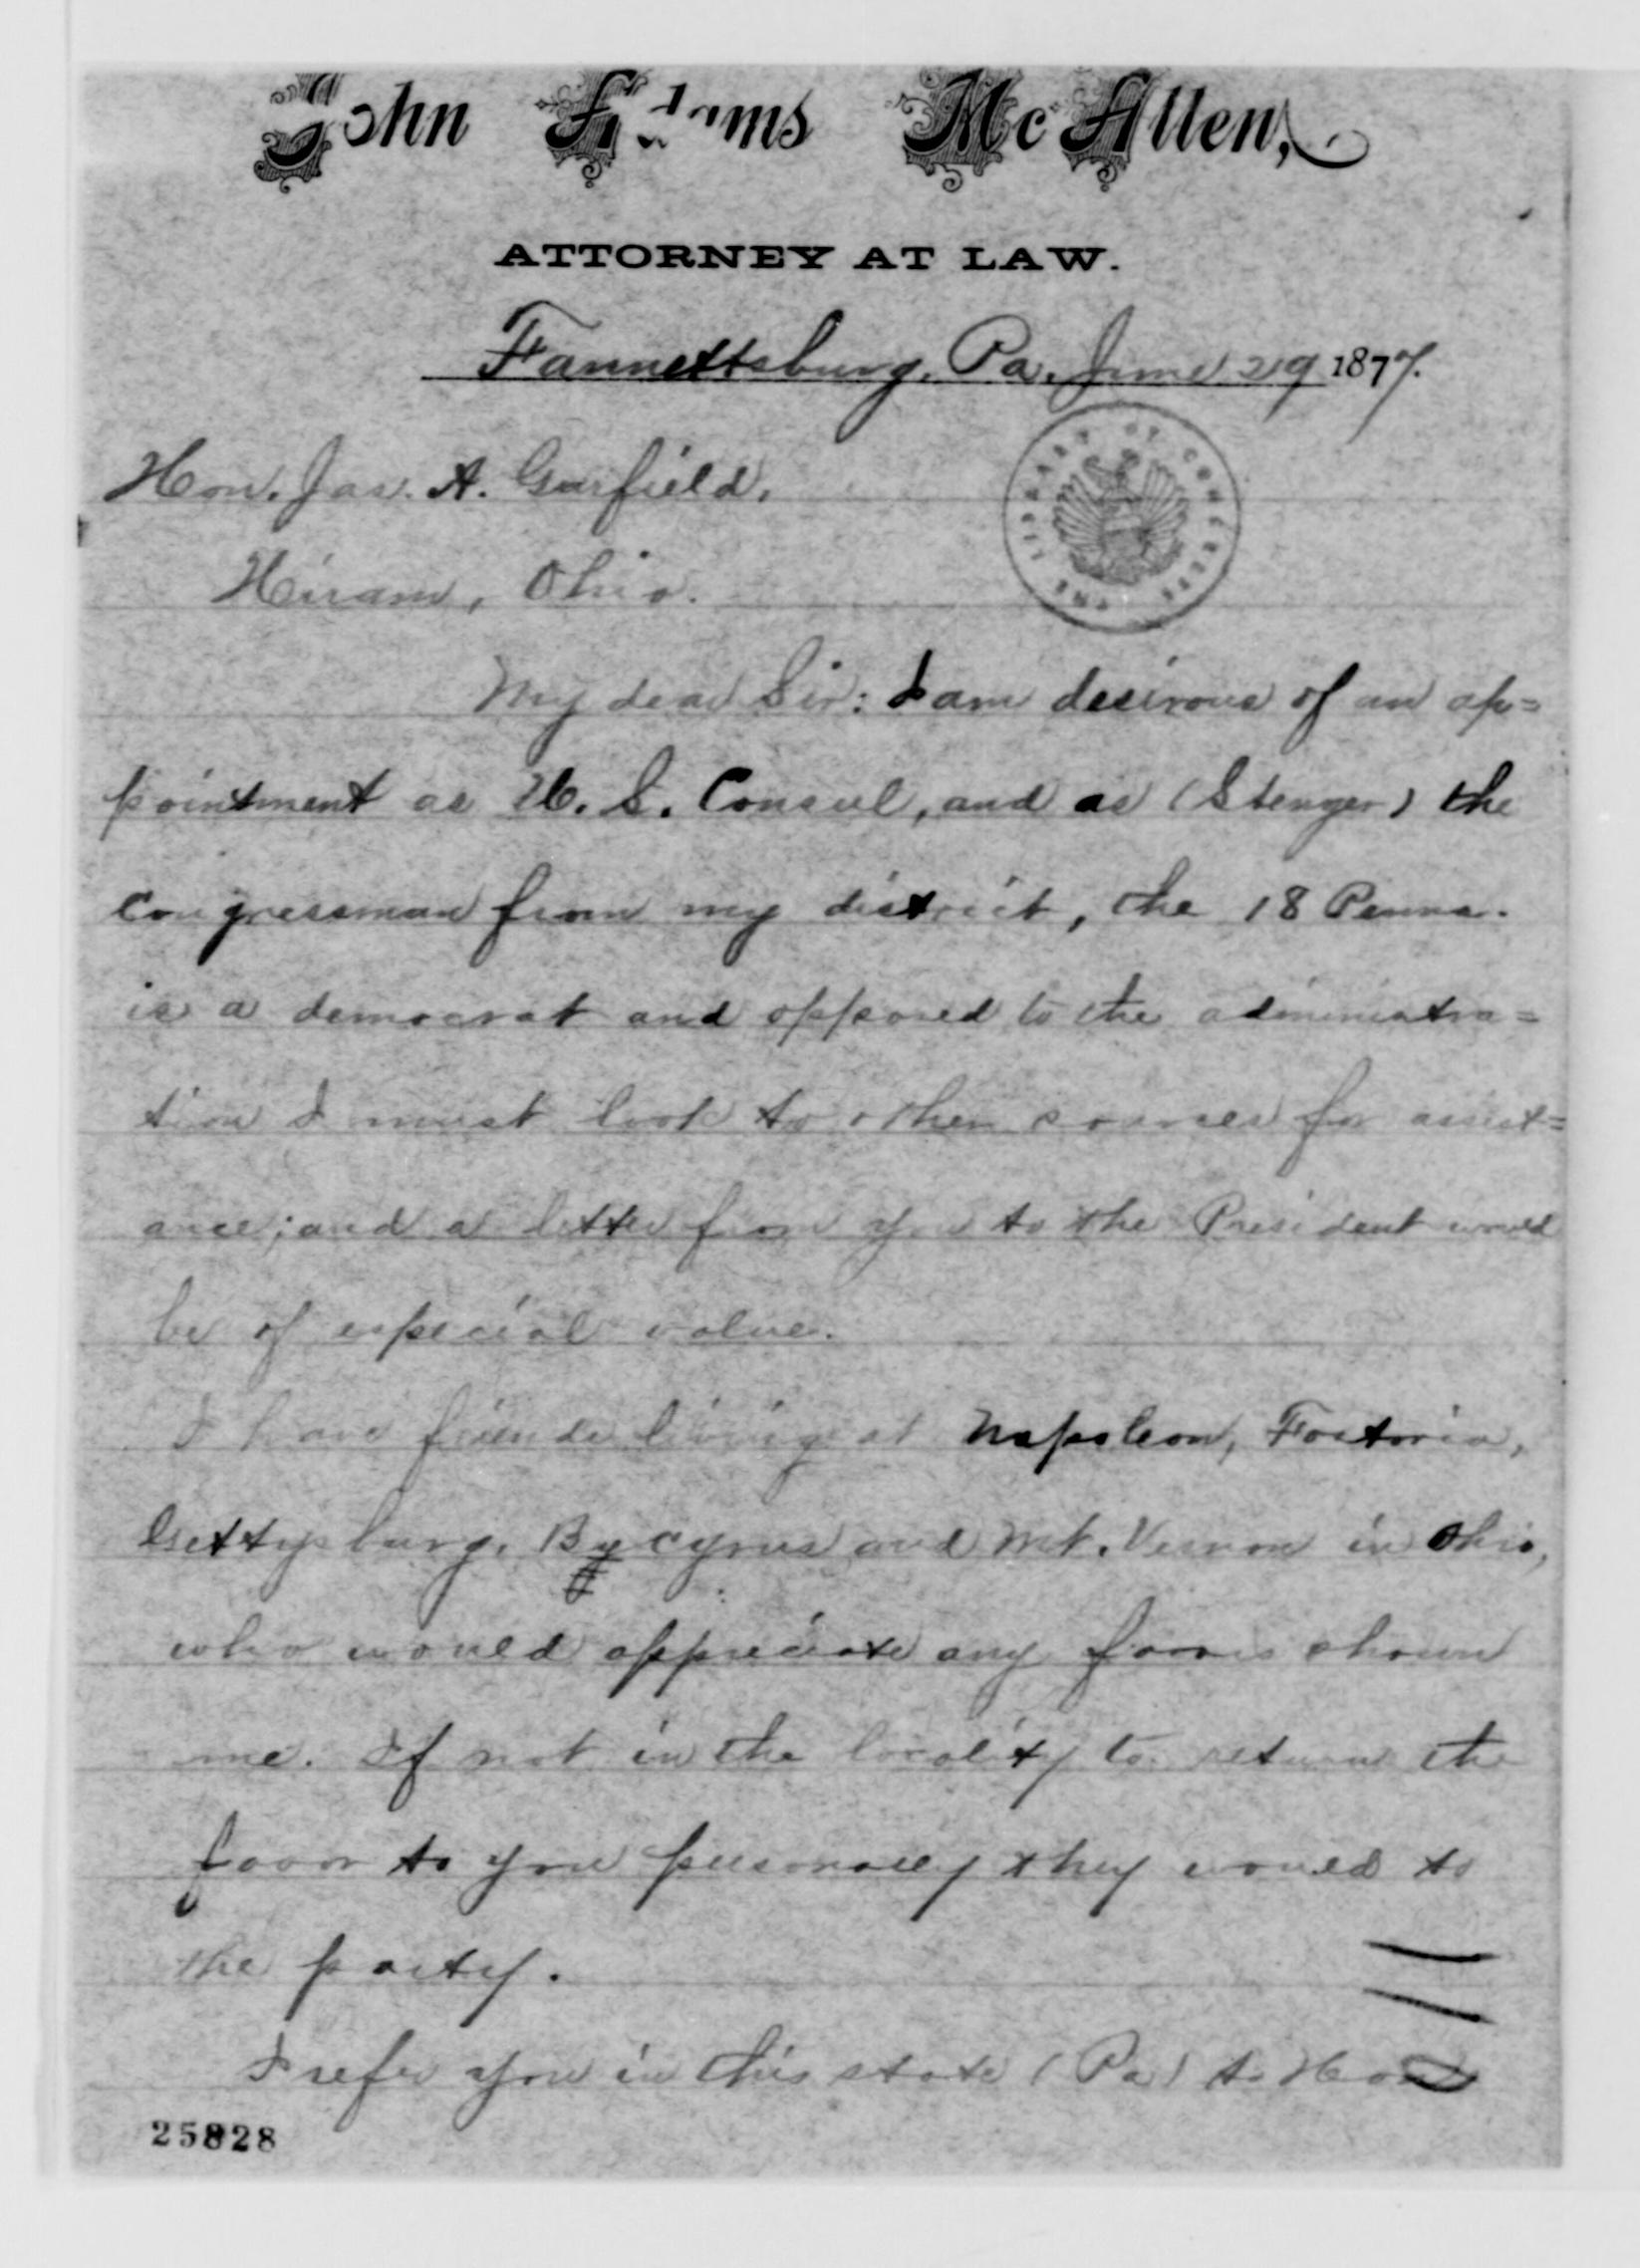 John Adams McAllen,
ATTORNEY AT LAW.
Fannettsburg, Pa. June 29 1877.
Hon. Jas. A. Garfield,
THE LIBRARY OF CONGRESS
Hiram, Ohio.
My dear Sir: I am desirous of an ap=
pointment as U. S. Consul, and as (Stenger) the
Congressman from my district, the 18 Penna.
is a democrat and opposed to the administra=
tion I must look to other sources for assist=
ance; and a letter from you to the President would
be of especial value.
I have friends living at Napoleon, Fostoria,
Gettysburg, Bycyrus and Mt. Vernon in Ohio,
who would appreciate any favors shown
me. If not in the locality to return the
favor to you personally they would to
the party.
I refer you in this state (Pa) to Hon
25828